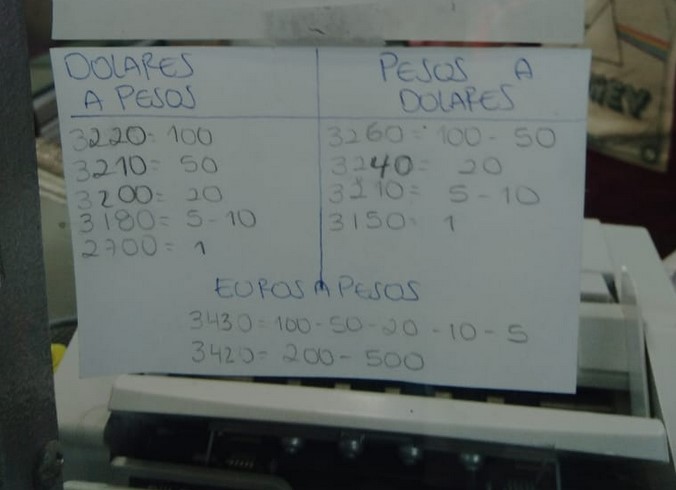 DOLARES
A PESOS
3220= 100
3210= 50
3200= 20
3180= 5-10
2700= 1
PESOS A
DOLARES
3260= 100-50
3240= 20
3210= 5-10
3150= 1
EUROS A PESOS
3430=100-50-20-10-5
3420= 200-500